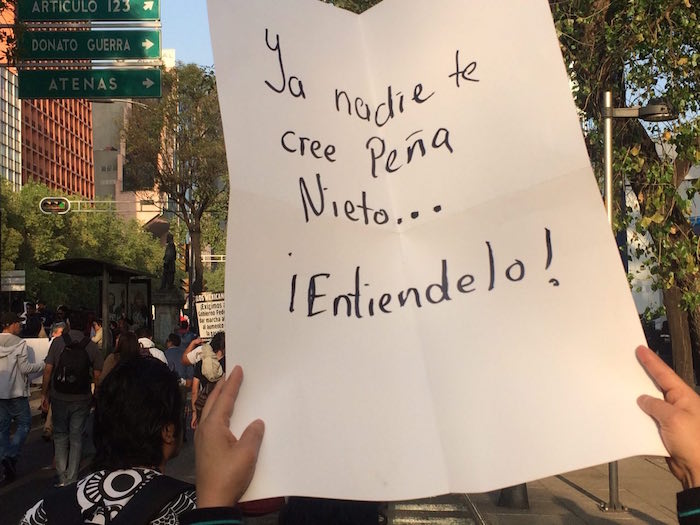 ARTÍCULO 123
DONATO GUERRA
ATENAS
Ya nadie te
cree Peña
Nieto...
¡Entiendelo!
LOS MEXICANOS
¡Exigimos
Gobierno
dar marcha
al aumento